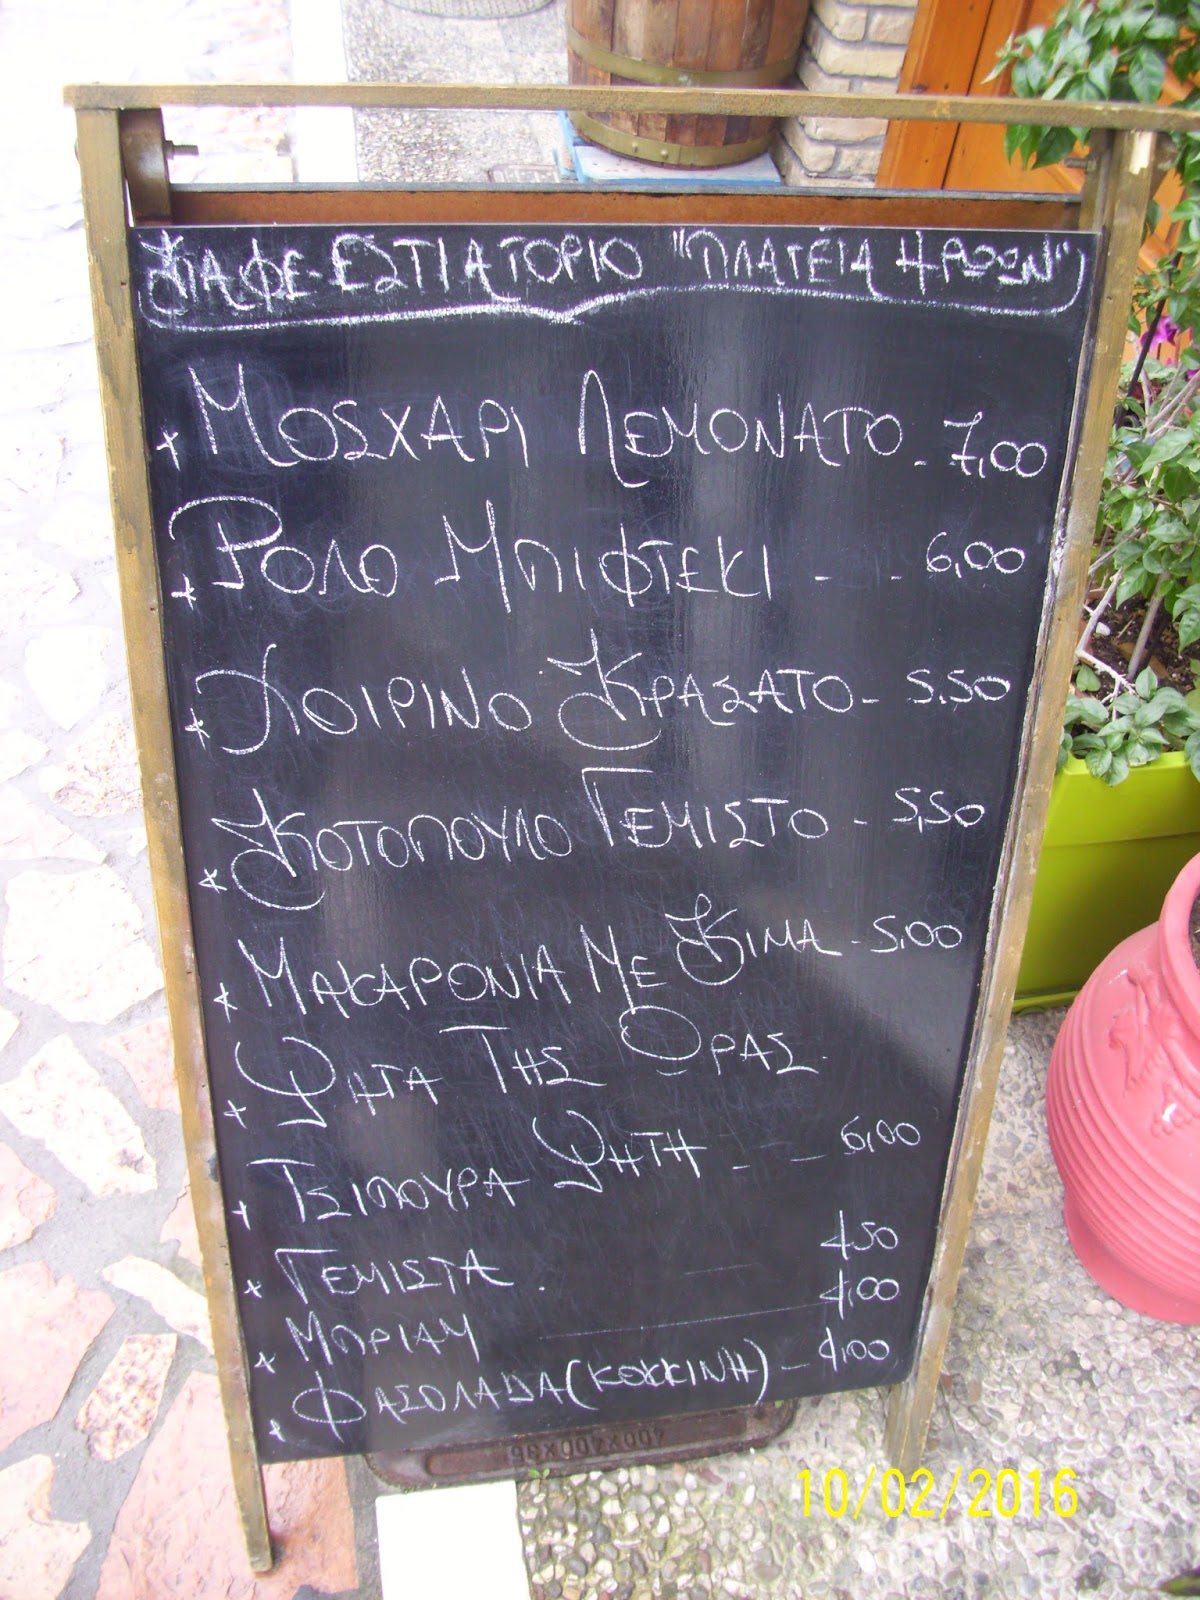 ΚΑΦΕ-ΕΣΤΙΑΤΟΡΙΟ "ΠΛΑΤΕΙΑ ΗΡΩΩΝ"
+ ΜΟΣΧΑΡΙ ΛΕΜΟΝΑΤΟ - 7,00
+ ΡΟΛΟ ΜΠΙΦΤΕΚΙ - - 6,00
+ ΧΟΙΡΙΝΟ ΚΡΑΣΑΤΟ - 5.50
+ ΚΟΤΟΠΟΥΛΟ ΓΕΜΙΣΤΟ - 5,50
+ ΜΑΚΑΡΟΝΙΑ ΜΕ ΚΙΜΑ - 5,00
+ ΨΗΤΑ ΤΗΣ ΩΡΑΣ
+ ΤΣΙΠΟΥΡΑ ΨΗΤΗ - - 6,00
+ ΓΕΜΙΣΤΑ . - 4,50
+ ΜΠΡΙΑΜ - 4,00
+ ΦΑΣΟΛΑΔΑ (ΚΟΚΚΙΝΗ) - 4,00
400X400X36
10/02/2016